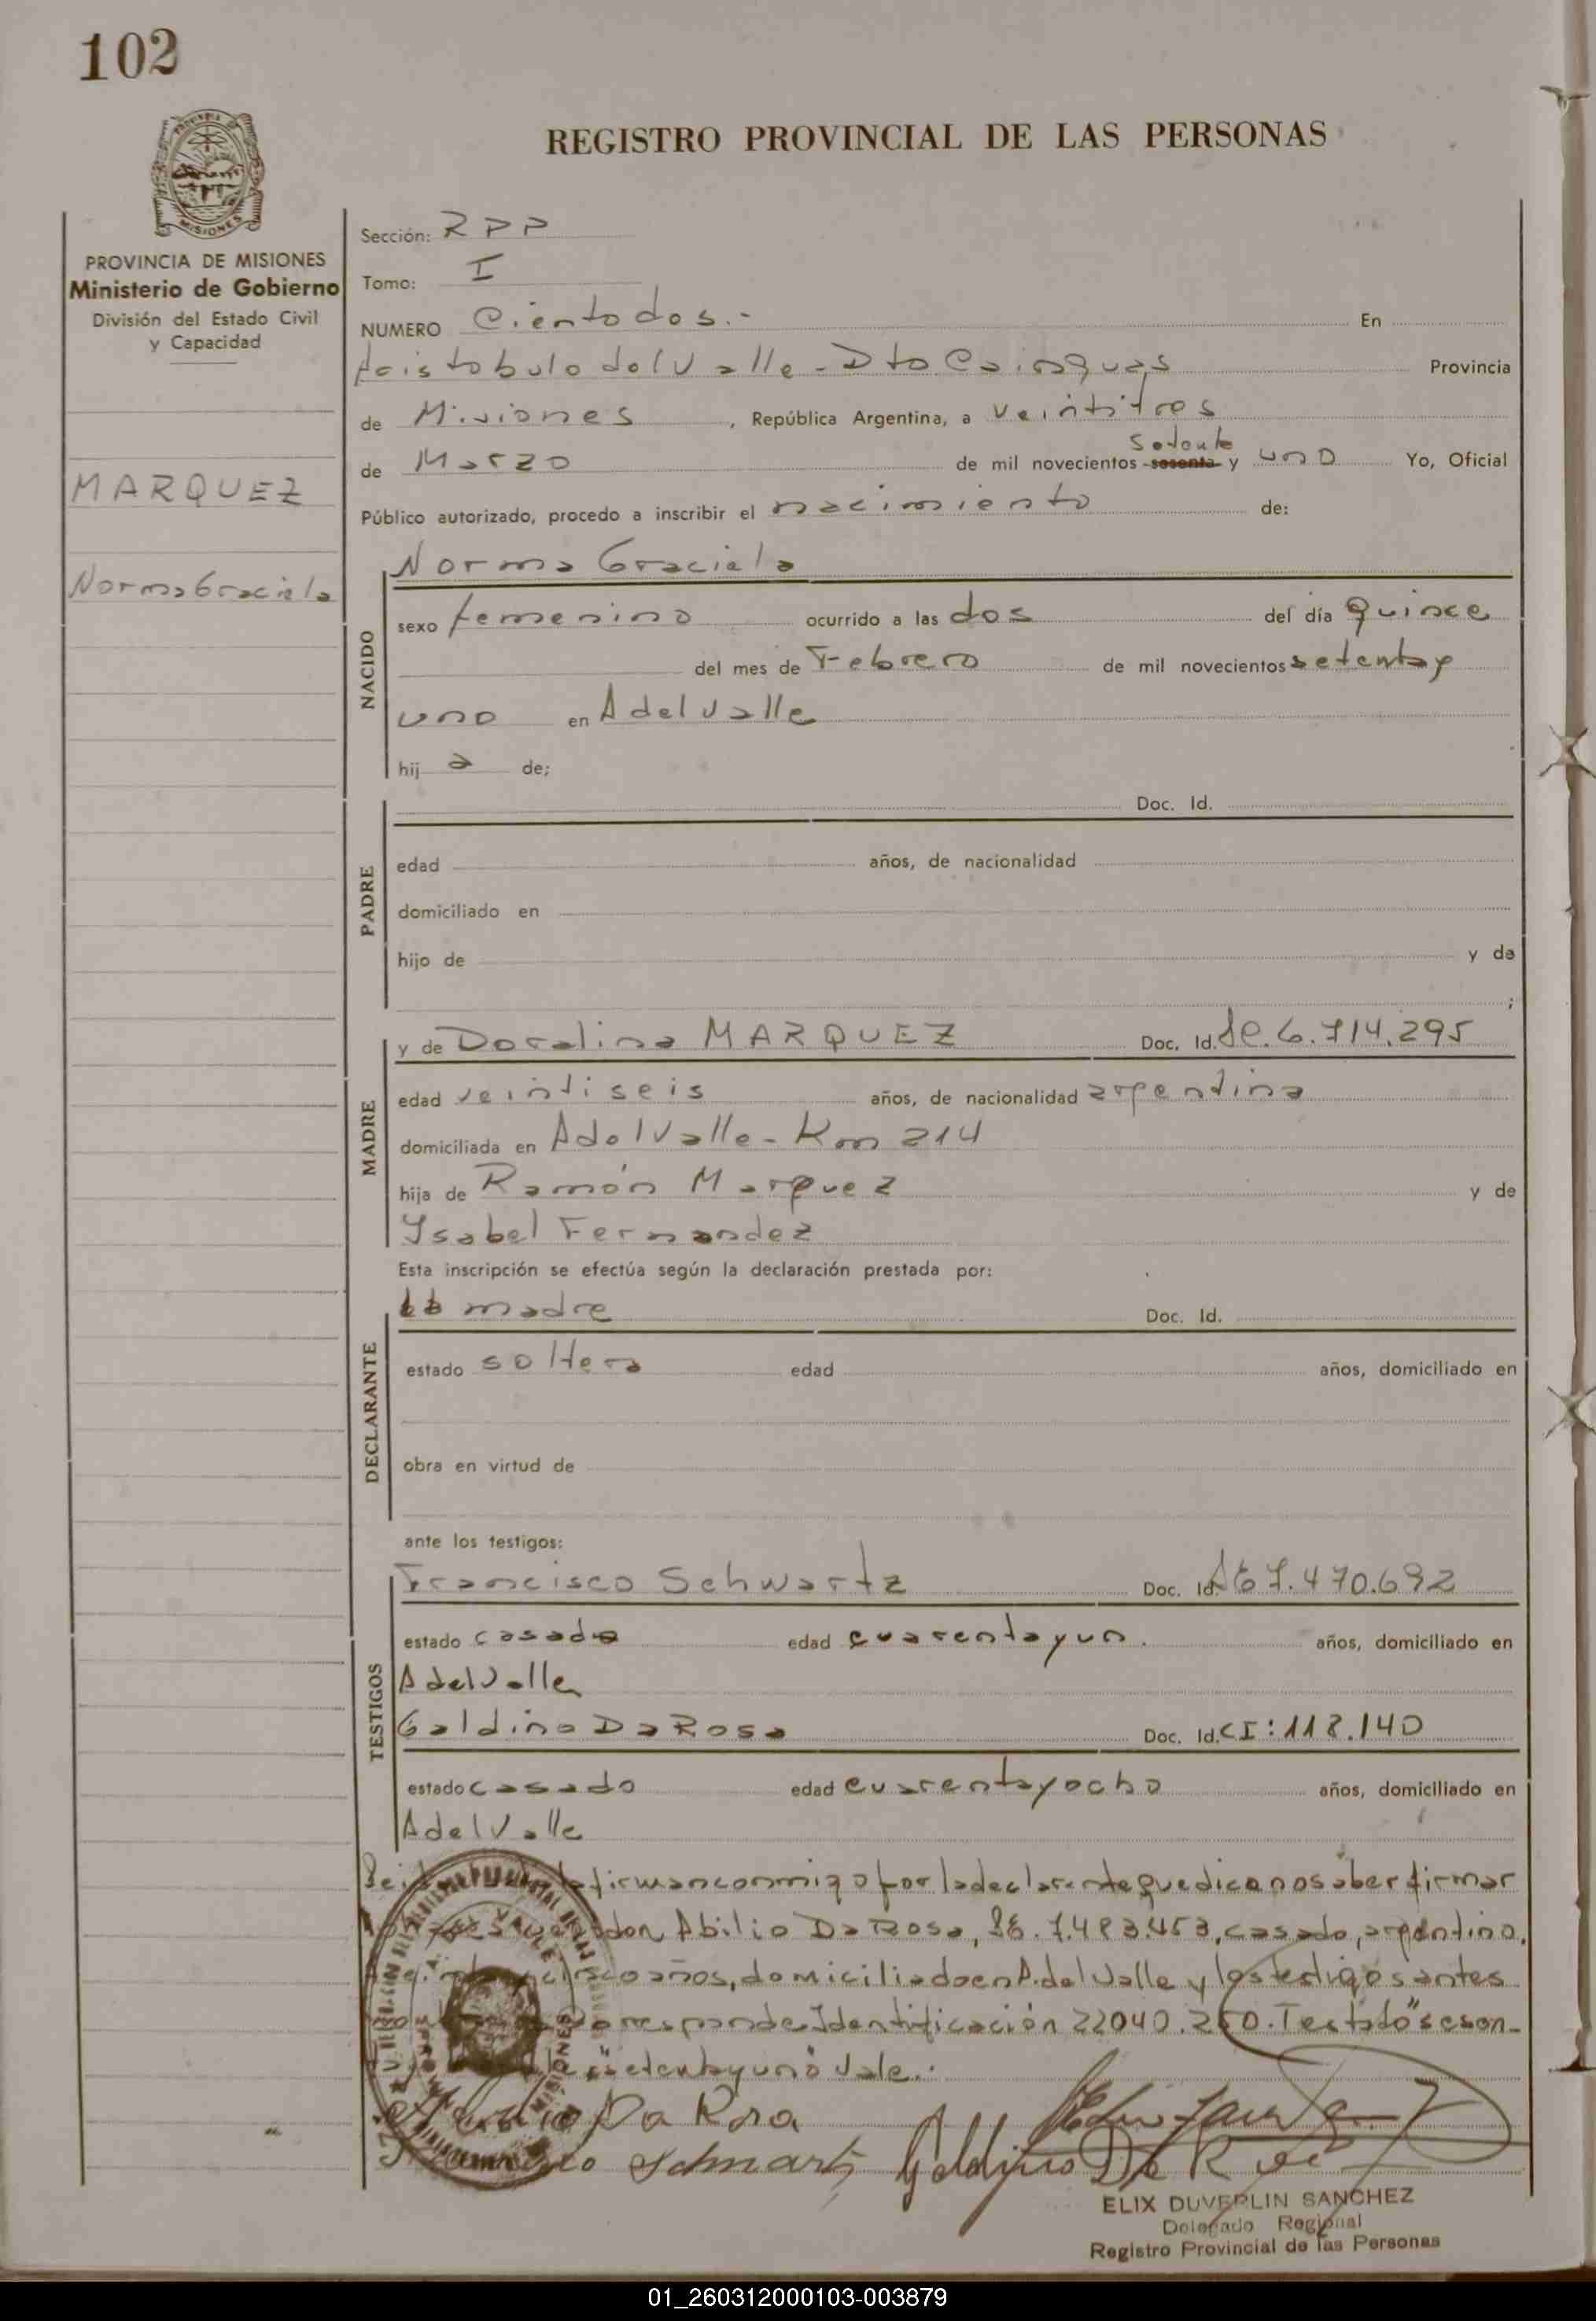 102
REGISTRO PROVINCIAL DE LAS PERSONAS
MISIONES
PROVINCIA DE MISIONES
Ministerio de Gobierno
División del Estado Civil
y Capacidad
MARQUEZ
Norma Graciela
Sección: RPP
Tomo: I
NUMERO Ciento dos.- En
Aristobulo del Valle - Dto Cainguas Provincia
de Misiones, República Argentina, a veintitres
setenta
de Marzo de mil novecientos sesenta y uno Yo, Oficial
Público autorizado, procedo a inscribir el nacimiento de:
NACIDO
Norma Graciela
sexo femenino ocurrido a las dos del día quince
del mes de Febrero de mil novecientos setenta y
uno en A del Valle
hij a de;
PADRE
Doc. Id.
edad años, de nacionalidad
domiciliado en
hijo de y de
;
MADRE
y de Doralina MARQUEZ Doc. Id. 6.714.295
edad veintiseis años, de nacionalidad argentina
domiciliada en A del Valle - Km 214
hija de Ramón Marquez y de
Ysabel Fernandez
Esta inscripción se efectúa según la declaración prestada por:
DECLARANTE
la madre Doc. Id.
estado soltera edad años, domiciliado en
obra en virtud de
ante los testigos:
TESTIGOS
Francisco Schwartz Doc. Id. 7.470.692
estado casado edad cuarenta y un. años, domiciliado en
A del Valle
Galdino Da Rosa Doc. Id. CI: 118.140
estado casado edad cuarenta y ocho años, domiciliado en
A del Valle
firman conmigo por la declarante que dice no saber firmar
don Abilio Da Rosa, 7.483.453, casado, argentino,
cinco años, domiciliado en A. del Valle y los testigos antes
Corresponde Identificación 22040.250. Testado "sesen-
"setenta y uno" Vale.-
Da Rosa
Schwartz Galdino Da Rosa
ELIX DUVERLIN SANCHEZ
Delegado Regional
Registro Provincial de las Personas
01_260312000103-003879